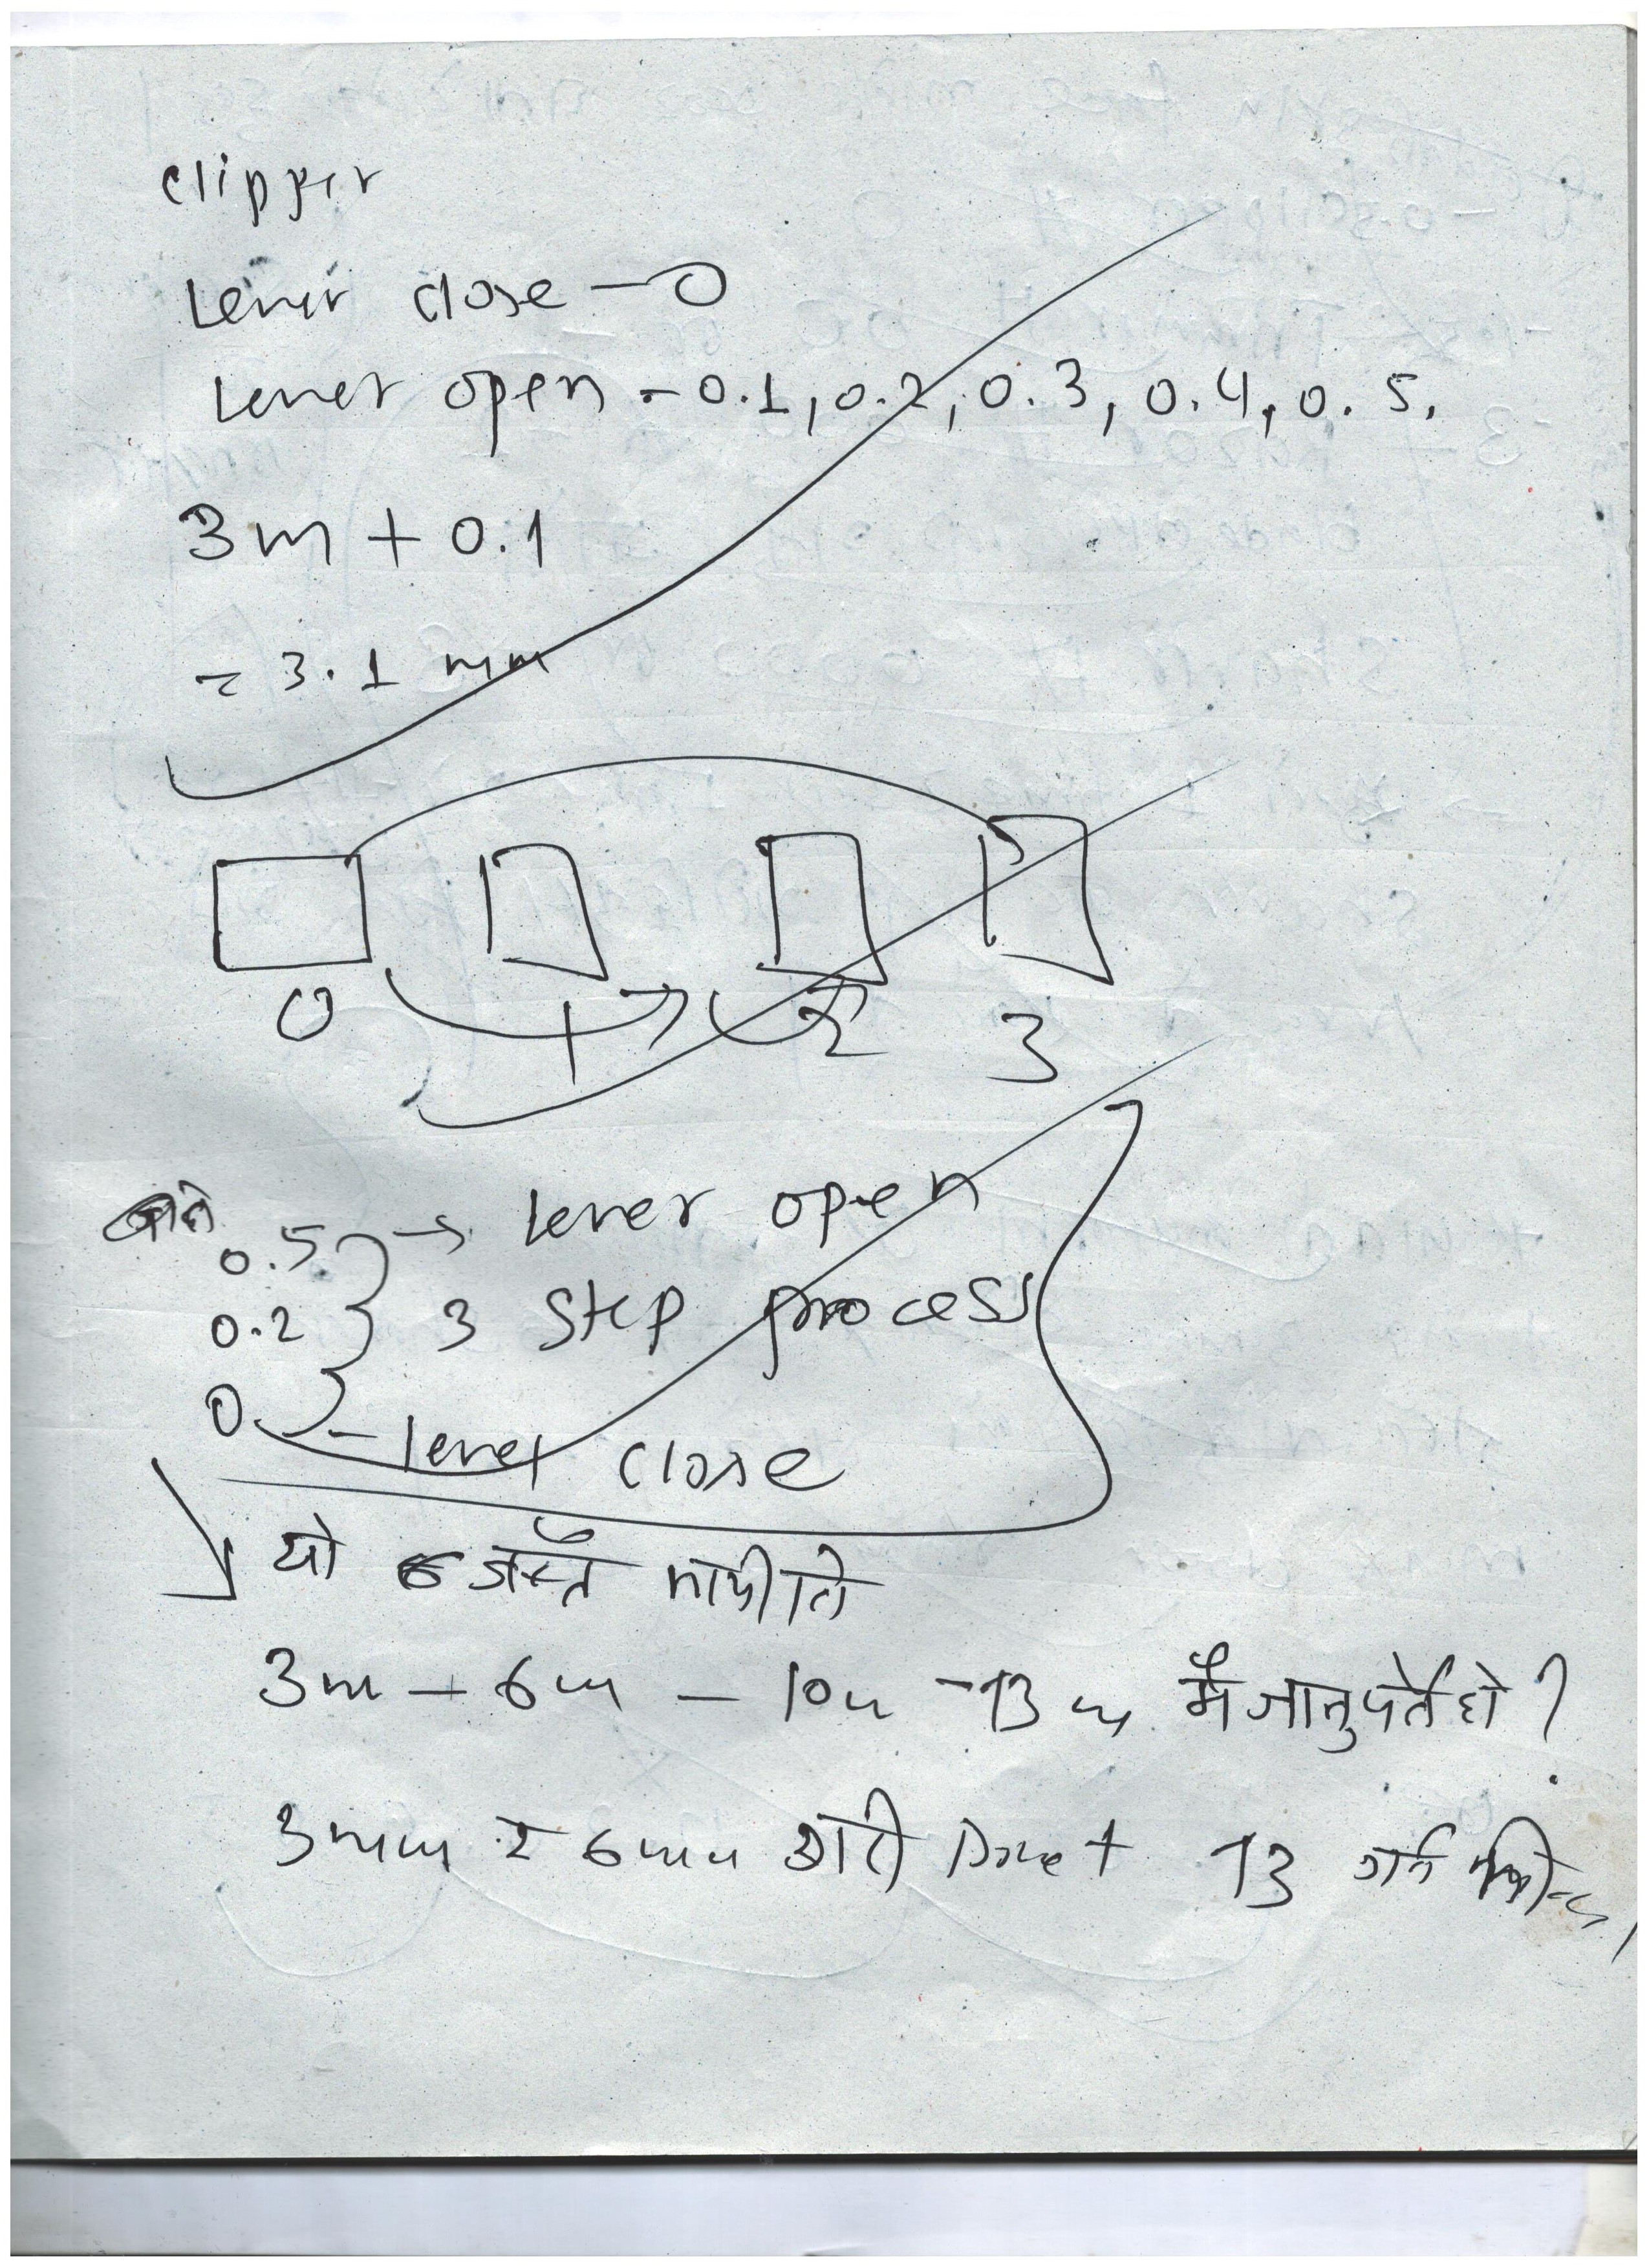 clipper
Lever close - 0
Lever open - 0.1, 0.2, 0.3, 0.4, 0.5.
3m + 0.1
= 3.1 mm
0 1 2 3
0.5 → lever open
0.2 3 Step process
0. - level close
यो जस्तै माथीति
3m - 6m - 10m - 13m मै जानुपर्ने हो ?
3mm र 6mm बाटै 13 गर्न